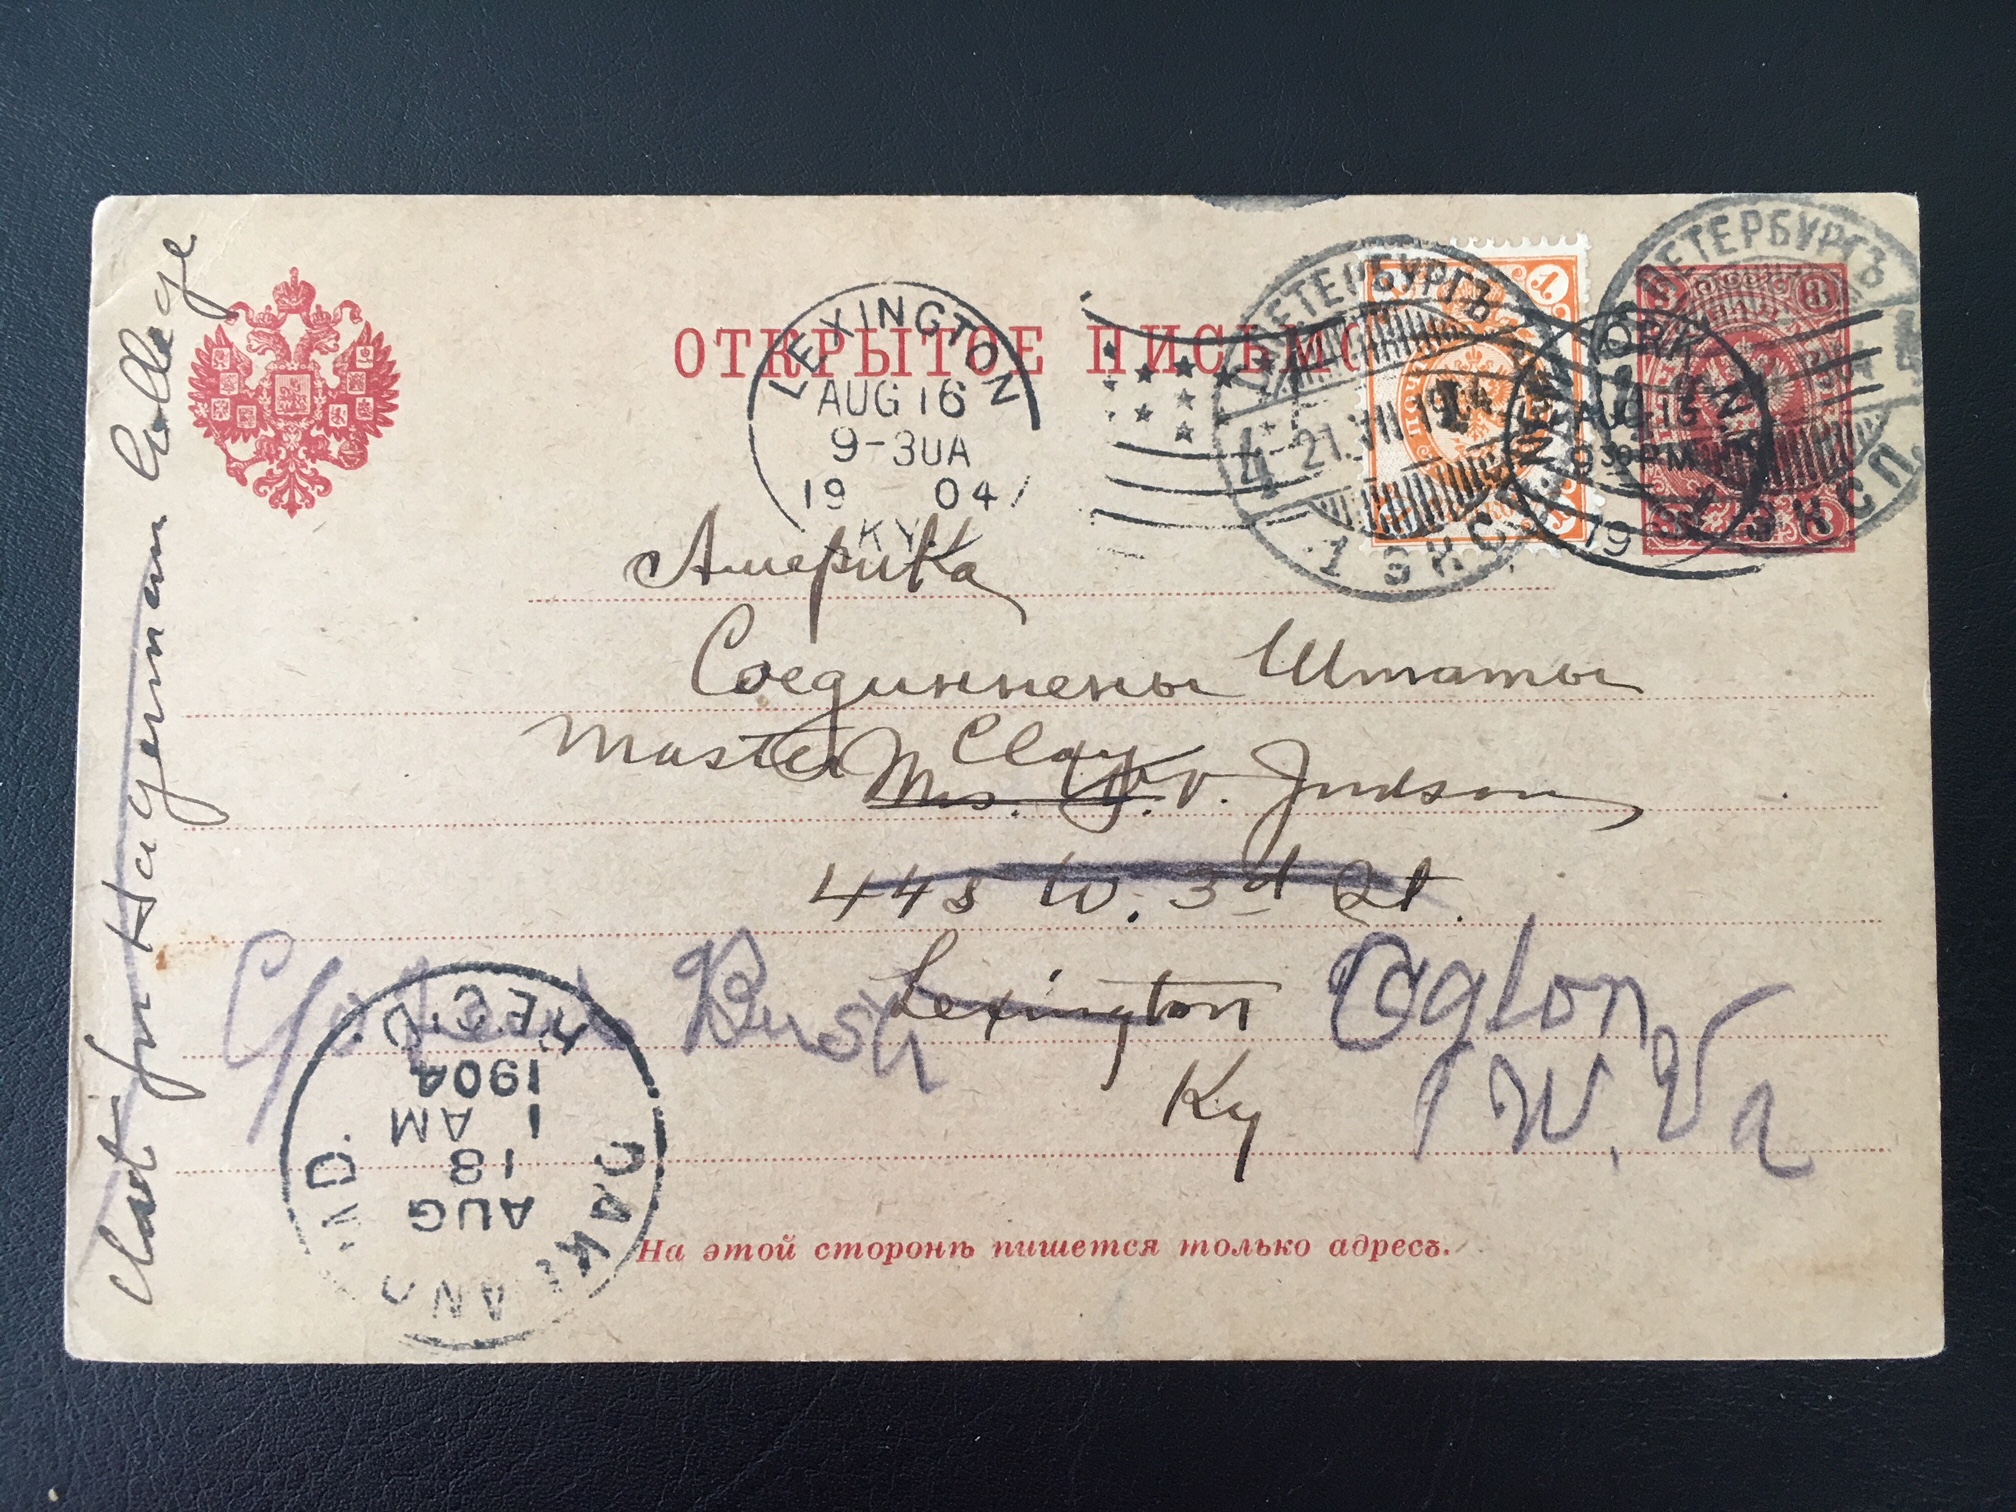 ОТКРЫТОЕ ПИСЬМО
LEXINGTON
AUG 16
9-30A
19 04
KY.
С.ПЕТЕРБУРГЪ
4 21.VII 1904
1 ЭКСП.
С.ПЕТЕРБУРГЪ
1 ЭКСП.
NEW YORK, N.Y.
AUG 15
9 30 PM
19
1
3
Америка
Соединнены Штаты
Master Clay
Mrs. F. V. Judson
448 W. 3d St.
Lexington
Ky
Bush
Oglon
W. Va
Hagerman College
OAKLAND, MD.
AUG
18
1 AM
1904
REC'D.
На этой сторонѣ пишется только адресъ.